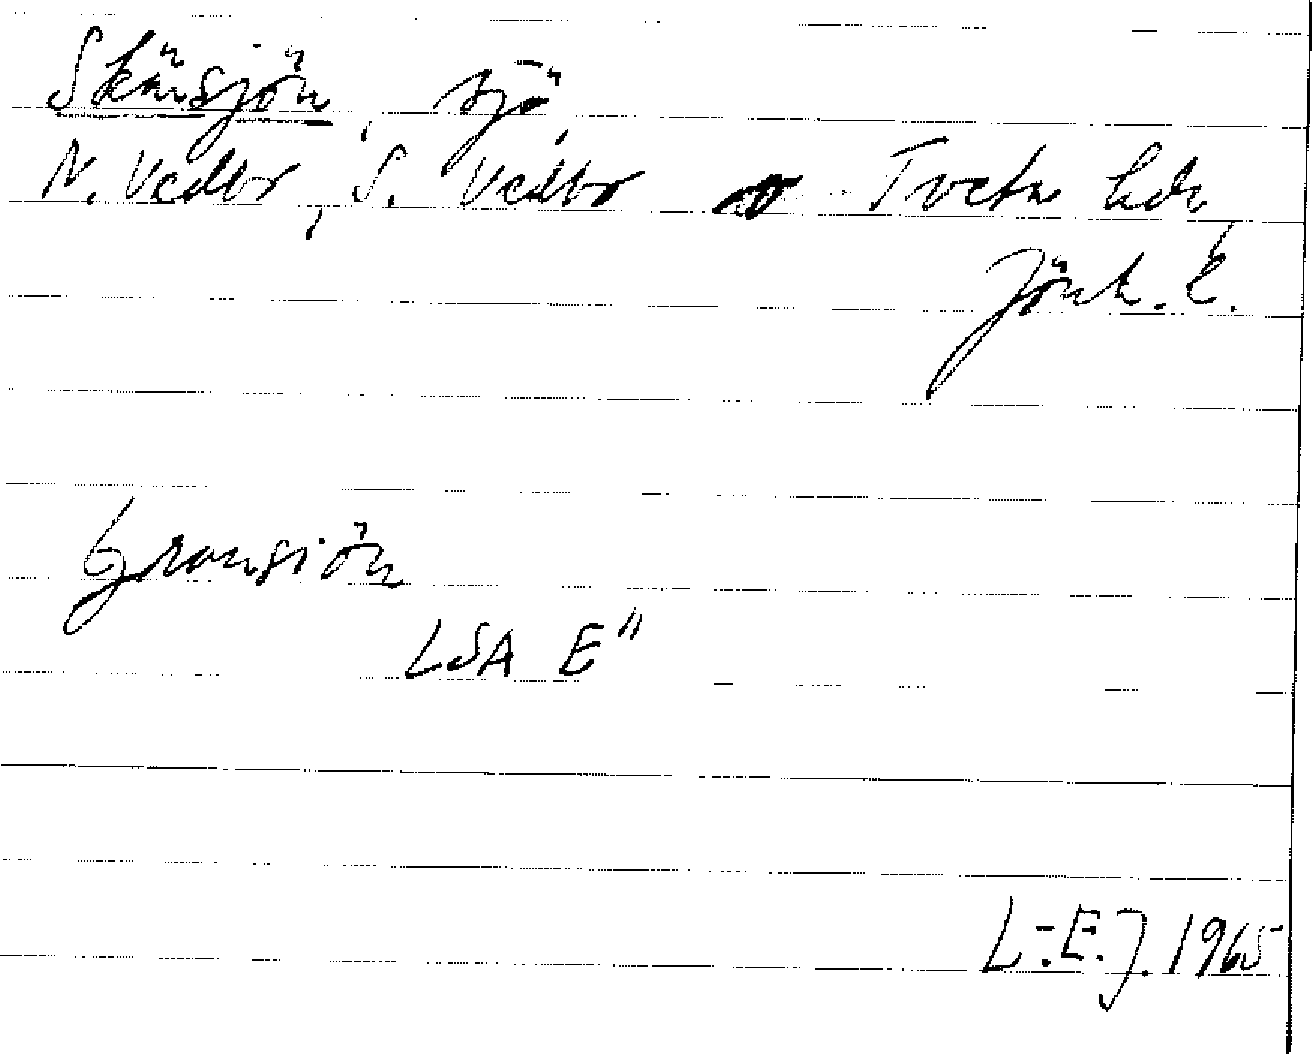 Skärsjön, sjö,
N. Vedbo, S. Vedbo Tveta hdr,
Jönk. l.
Gransjön
LSA E"
L.-E.J. 1965